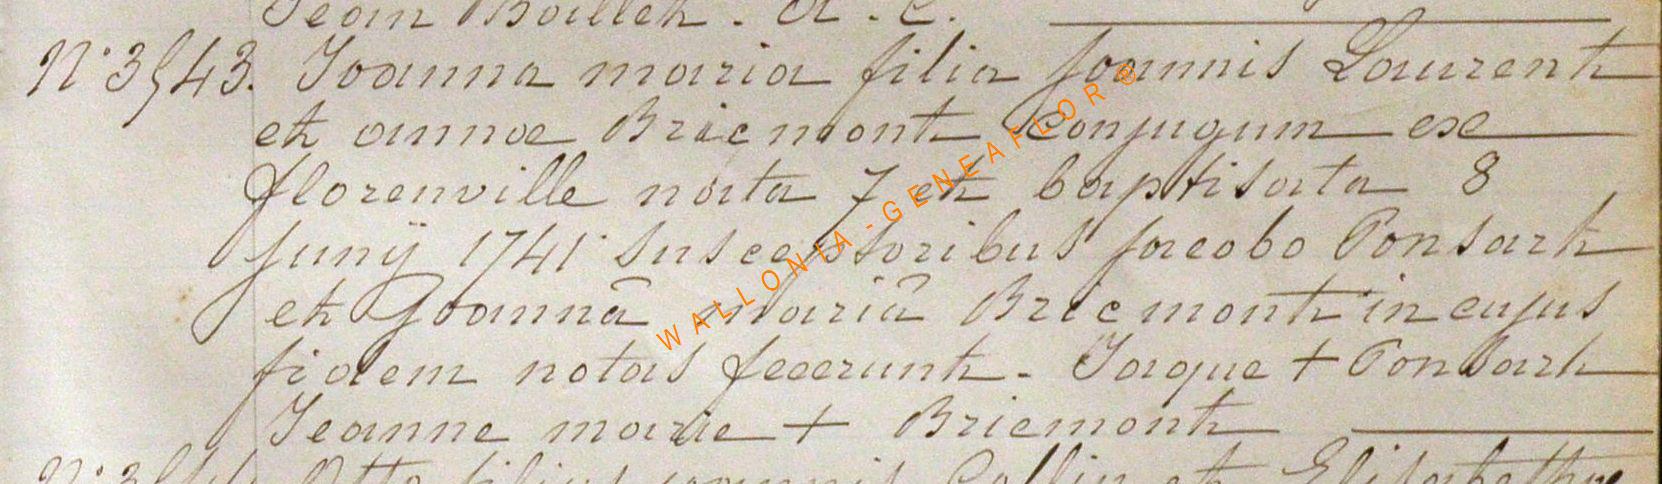 Jean Baillet. A. C.
N° 3543. Joanna maria filia joannis Laurent
et annae Bricmont conjugum ex
florenville nata 7 et baptisata 8
junij 1741 Susceptoribus jacobo Ponsart
et Joannâ mariâ Bricmont in cujus
fidem notas fecerunt. Jaque + Ponsart
Jeanne marie + Bricmont
WALLONIA-GENEAFLOR®
Otto filius joannis Collin et Elisabethae